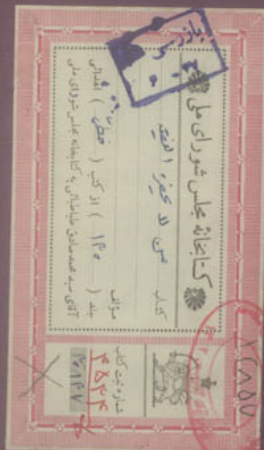 بازرسی
کتابخانه مجلس شورای ملی
کتاب من لا یحضره الفقیه
مؤلف
جلد ( ۱۴۰ ) از کتب ( خطی ) اهدائی
آقای سید محمد صادق طباطبائی به کتابخانه مجلس شورای ملی
شماره ثبت کتاب
۴۵۴۴
۲۰۱۴۷